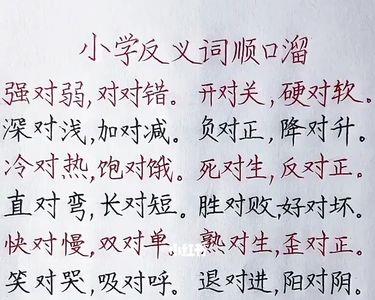 小学反义词顺口溜
强对弱,对对错。开对关,硬对软。
深对浅,加对减。负对正,降对升。
冷对热,饱对饿。死对生,反对正。
直对弯,长对短。胜对败,好对坏。
快对慢,双对单。熟对生,歪对正。
笑对哭,吸对呼。退对进,阳对阴。